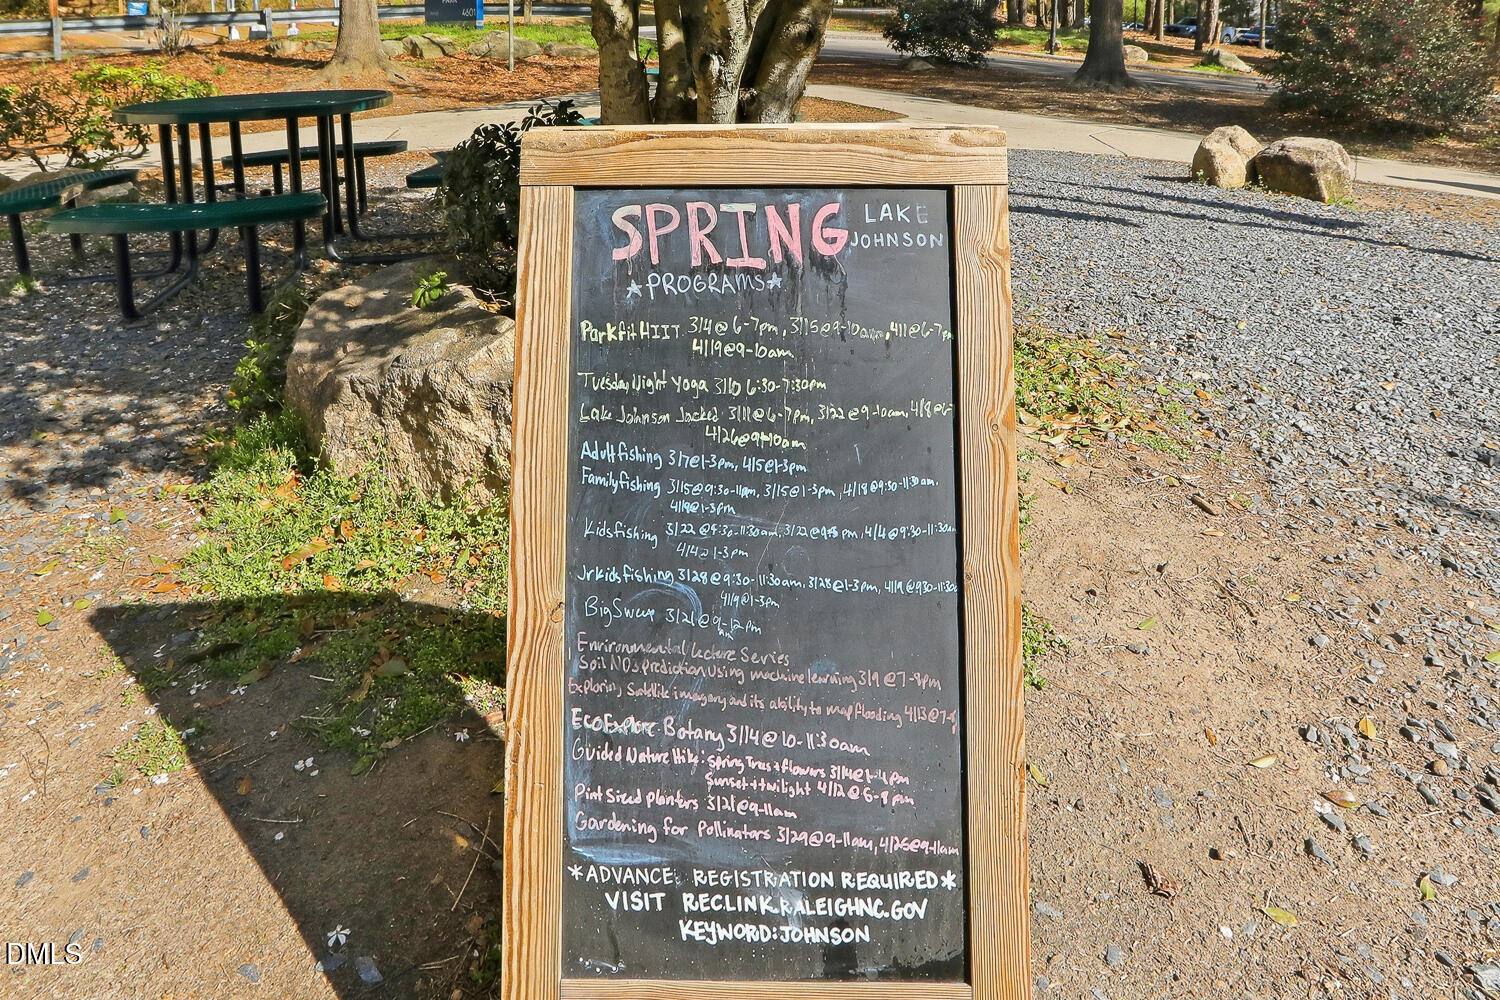 PARK
4601
SPRING LAKE JOHNSON
*PROGRAMS*
Parkfit HIIT 3/4@6-7pm, 3/15@9-10am, 4/1@6-7pm
4/19@9-10am
Tuesday Night Yoga 3/10 6:30-7:30pm
Lake Johnson Jacked 3/11@6-7pm, 3/22@9-10am, 4/8@6-7
4/26@9-10am
Adult fishing 3/7@1-3pm, 4/5@1-3pm
Family fishing 3/15@9:30-11am, 3/15@1-3pm, 4/18@9:30-11:30am,
4/18@1-3pm
Kids fishing 3/22@9:30-11:30am, 3/22@ pm, 4/4@9:30-11:30am
4/4@1-3pm
Jr kids fishing 3/28@9:30-11:30am, 3/28@1-3pm, 4/19@9:30-11:30am
4/19@1-3pm
Big Sweep 3/21@9am-12pm
Environmental Lecture Series
Soil NO3 prediction using machine learning 3/9@7-8pm
Exploring Satellite imagery and its ability to map flooding 4/13@7-8
EcoExplore: Botany 3/14@10-11:30am
Guided Nature Hike: Spring Trees + flowers 3/14@1-4pm
Sunset + twilight 4/12@6-8pm
Pint Sized Planters 3/21@9-11am
Gardening for Pollinators 3/29@9-11am, 4/25@9-11am
*ADVANCE REGISTRATION REQUIRED*
VISIT RECLINK.RALEIGHNC.GOV
KEYWORD: JOHNSON
DMLS